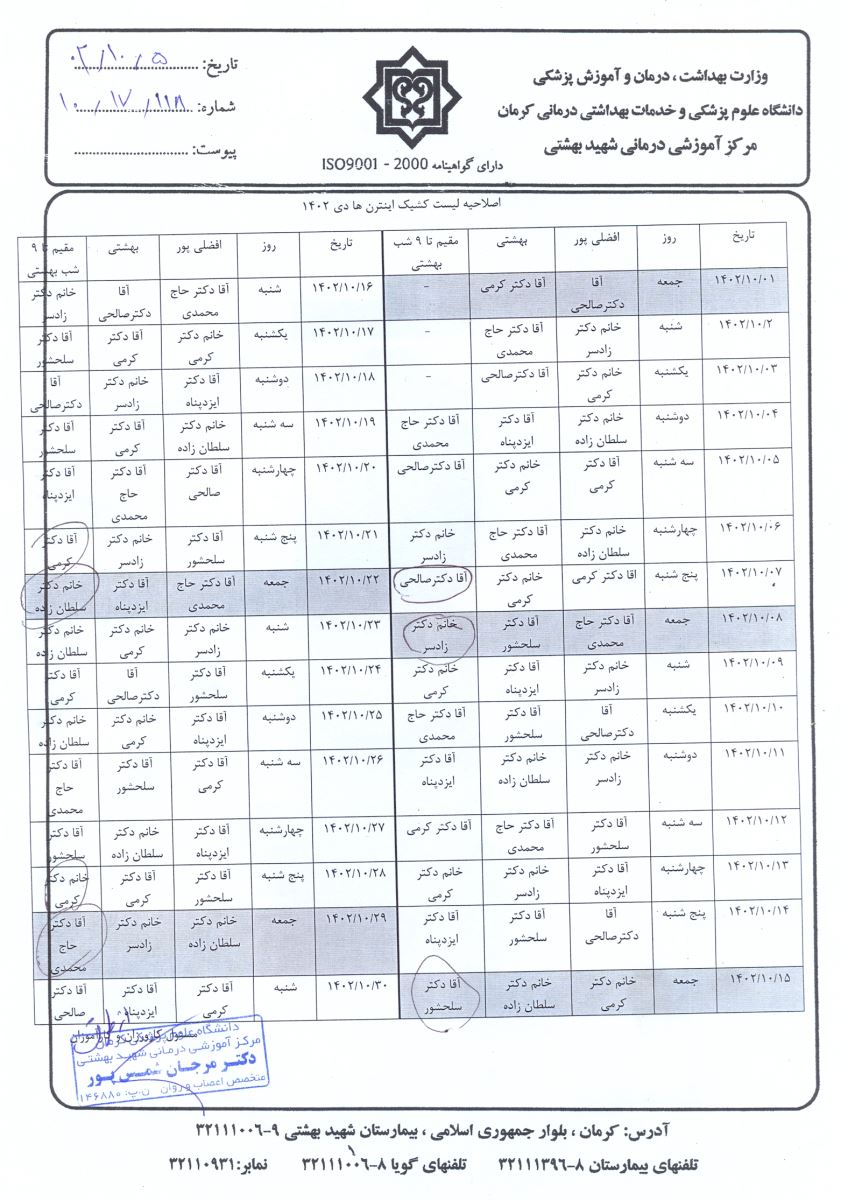 تاریخ: ۰۲/۱۰/۵
شماره: ۱۰/۱۷/۱۱۸
پیوست:
وزارت بهداشت، درمان و آموزش پزشکی
دانشگاه علوم پزشکی و خدمات بهداشتی درمانی کرمان
مرکز آموزشی درمانی شهید بهشتی
دارای گواهینامه ISO9001 - 2000
اصلاحیه لیست کشیک اینترن ها دی ۱۴۰۲
تاریخ روز افضلی پور بهشتی مقیم تا ۹ شب بهشتی
۱۴۰۲/۱۰/۰۱ جمعه آقا دکترصالحی آقا دکتر کرمی -
۱۴۰۲/۱۰/۲ شنبه خانم دکتر زادسر آقا دکتر حاج محمدی -
۱۴۰۲/۱۰/۰۳ یکشنبه خانم دکتر کرمی آقا دکترصالحی -
۱۴۰۲/۱۰/۰۴ دوشنبه خانم دکتر سلطان زاده آقا دکتر ایزدپناه آقا دکتر حاج محمدی
۱۴۰۲/۱۰/۰۵ سه شنبه آقا دکتر کرمی خانم دکتر کرمی آقا دکترصالحی
۱۴۰۲/۱۰/۰۶ چهارشنبه خانم دکتر سلطان زاده آقا دکتر حاج محمدی خانم دکتر زادسر
۱۴۰۲/۱۰/۰۷ پنج شنبه اقا دکتر کرمی خانم دکتر کرمی آقا دکترصالحی
۱۴۰۲/۱۰/۰۸ جمعه آقا دکتر حاج محمدی آقا دکتر سلحشور خانم دکتر زادسر
۱۴۰۲/۱۰/۰۹ شنبه خانم دکتر زادسر آقا دکتر ایزدپناه خانم دکتر کرمی
۱۴۰۲/۱۰/۱۰ یکشنبه آقا دکترصالحی آقا دکتر سلحشور آقا دکتر حاج محمدی
۱۴۰۲/۱۰/۱۱ دوشنبه خانم دکتر زادسر خانم دکتر سلطان زاده آقا دکتر ایزدپناه
۱۴۰۲/۱۰/۱۲ سه شنبه آقا دکتر سلحشور آقا دکتر حاج محمدی آقا دکتر کرمی
۱۴۰۲/۱۰/۱۳ چهارشنبه آقا دکتر ایزدپناه خانم دکتر زادسر خانم دکتر کرمی
۱۴۰۲/۱۰/۱۴ پنج شنبه آقا دکترصالحی آقا دکتر سلحشور آقا دکتر ایزدپناه
۱۴۰۲/۱۰/۱۵ جمعه خانم دکتر کرمی خانم دکتر سلطان زاده آقا دکتر سلحشور
تاریخ روز افضلی پور بهشتی مقیم تا ۹ شب بهشتی
۱۴۰۲/۱۰/۱۶ شنبه آقا دکتر حاج محمدی آقا دکترصالحی خانم دکتر زادسر
۱۴۰۲/۱۰/۱۷ یکشنبه خانم دکتر کرمی آقا دکتر کرمی آقا دکتر سلحشور
۱۴۰۲/۱۰/۱۸ دوشنبه آقا دکتر ایزدپناه خانم دکتر زادسر آقا دکترصالحی
۱۴۰۲/۱۰/۱۹ سه شنبه خانم دکتر سلطان زاده آقا دکتر کرمی آقا دکتر سلحشور
۱۴۰۲/۱۰/۲۰ چهارشنبه آقا دکتر صالحی آقا دکتر حاج محمدی آقا دکتر ایزدپناه
۱۴۰۲/۱۰/۲۱ پنج شنبه آقا دکتر سلحشور خانم دکتر زادسر آقا دکتر کرمی
۱۴۰۲/۱۰/۲۲ جمعه آقا دکتر حاج محمدی آقا دکتر ایزدپناه خانم دکتر سلطان زاده
۱۴۰۲/۱۰/۲۳ شنبه خانم دکتر زادسر خانم دکتر کرمی خانم دکتر سلطان زاده
۱۴۰۲/۱۰/۲۴ یکشنبه آقا دکتر سلحشور آقا دکترصالحی آقا دکتر کرمی
۱۴۰۲/۱۰/۲۵ دوشنبه آقا دکتر ایزدپناه خانم دکتر کرمی خانم دکتر سلطان زاده
۱۴۰۲/۱۰/۲۶ سه شنبه آقا دکتر کرمی آقا دکتر سلحشور آقا دکتر حاج محمدی
۱۴۰۲/۱۰/۲۷ چهارشنبه آقا دکتر ایزدپناه خانم دکتر سلطان زاده آقا دکتر سلحشور
۱۴۰۲/۱۰/۲۸ پنج شنبه آقا دکتر سلحشور آقا دکتر کرمی خانم دکتر کرمی
۱۴۰۲/۱۰/۲۹ جمعه خانم دکتر سلطان زاده خانم دکتر زادسر آقا دکتر حاج محمدی
۱۴۰۲/۱۰/۳۰ شنبه آقا دکتر کرمی آقا دکتر ایزدپناه آقا دکتر صالحی
مسئول کارورزان و کارآموزان
دانشگاه علوم پزشکی کرمان
مرکز آموزشی درمانی شهید بهشتی
دکتر مرجان شمس پور
متخصص اعصاب و روان ن.پ: ۱۴۶۸۸۰
آدرس: کرمان ، بلوار جمهوری اسلامی ، بیمارستان شهید بهشتی ۹-۳۲۱۱۱۰۰۶
تلفنهای بیمارستان ۸-۳۲۱۱۱۳۹۶ تلفنهای گویا ۸-۳۲۱۱۱۰۰۶ نمابر:۳۲۱۱۰۹۳۱